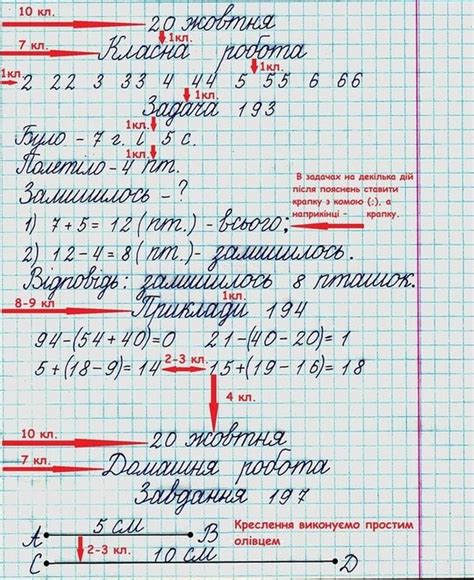 10 кл. 20 жовтня
1кл.
7 кл. Класна робота
1кл. 1кл.
2 22 3 33 4 44 5 55 6 66
1кл.
Задача 193
1кл.
Було – 7 г. і 5 с.
1кл.
Полетіло – 4 пт.
Залишилось – ?
В задачах на декілька дій
після пояснень ставити
крапку з комою (;), а
наприкінці - крапку.
1) 7 + 5 = 12 ( пт. ) – всього;
2) 12 – 4 = 8 ( пт. ) – залишилось.
Відповідь: залишилось 8 пташок.
1кл.
8-9 кл Приклади 194
94 – (54 + 40) = 0 21 – (40 – 20) = 1
2-3 кл.
5 + (18 – 9) = 14 15 + (19 – 16) = 18
4 кл.
10 кл. 20 жовтня
7 кл. Домашня робота
Завдання 197
5 см
A B
Креслення виконуємо простим
олівцем
2-3 кл. 10 см
C D